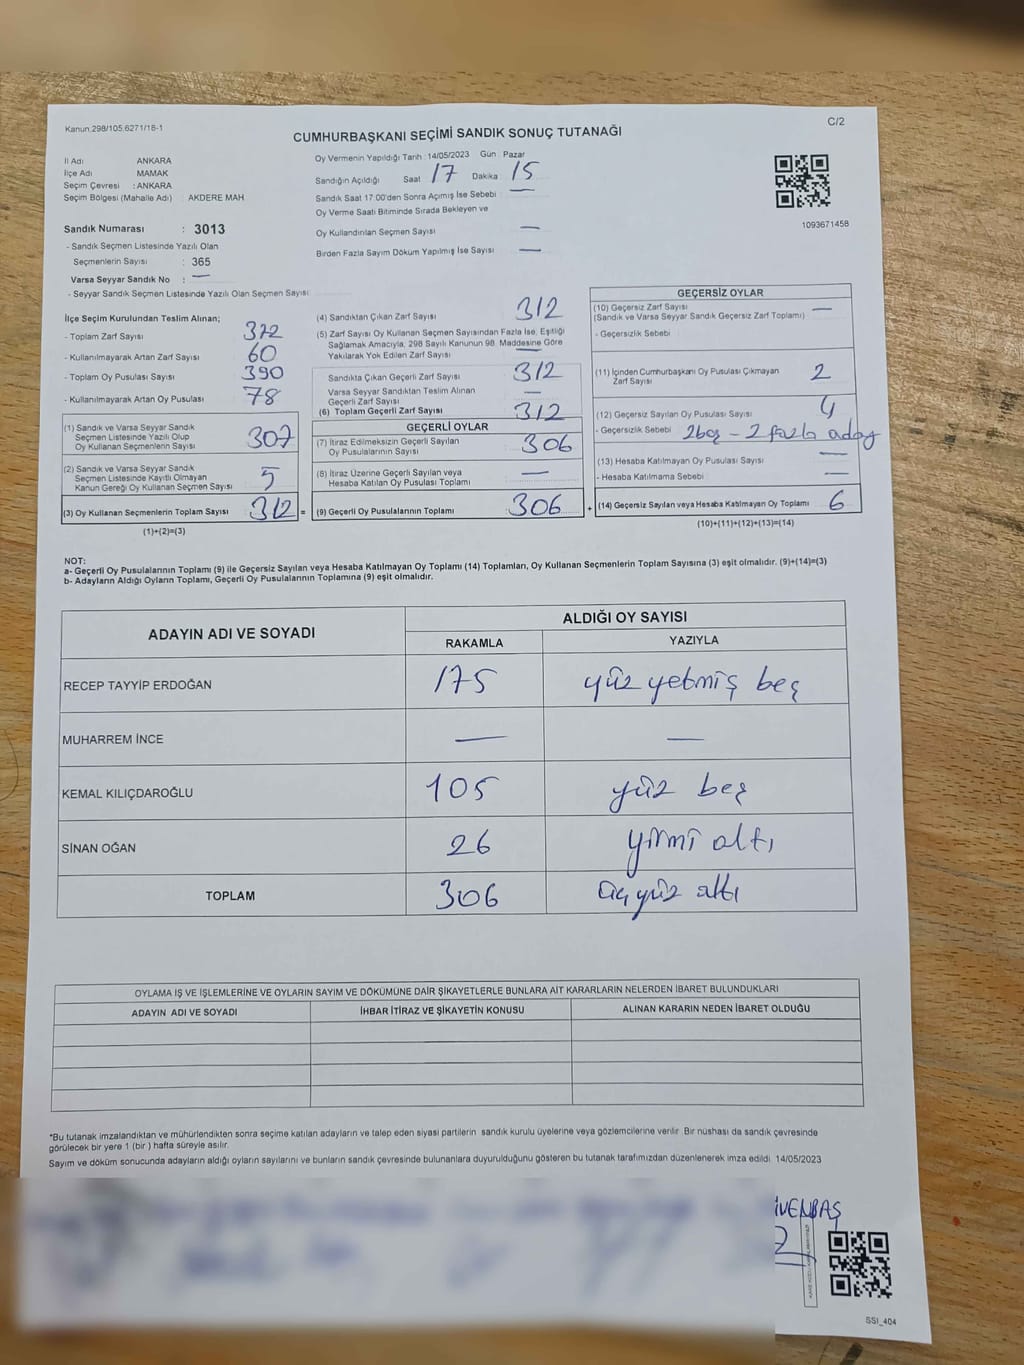 Kanun.298/105.6271/18-1
C/2
CUMHURBAŞKANI SEÇİMİ SANDIK SONUÇ TUTANAĞI
İl Adı ANKARA
İlçe Adı MAMAK
Seçim Çevresi : ANKARA
Seçim Bölgesi (Mahalle Adı) : AKDERE MAH
Oy Vermenin Yapıldığı Tarih : 14/05/2023 Gün : Pazar
Sandığın Açıldığı Saat 17 Dakika 15
Sandık Saat 17:00'den Sonra Açımış İse Sebebi —
Oy Verme Saati Bitiminde Sırada Bekleyen ve
Oy Kullandırılan Seçmen Sayısı —
Birden Fazla Sayım Döküm Yapılmış İse Sayısı —
1093671458
Sandık Numarası : 3013
- Sandık Seçmen Listesinde Yazılı Olan
Seçmenlerin Sayısı : 365
Varsa Seyyar Sandık No : —
- Seyyar Sandık Seçmen Listesinde Yazılı Olan Seçmen Sayısı
İlçe Seçim Kurulundan Teslim Alınan;
- Toplam Zarf Sayısı 372
- Kullanılmayarak Artan Zarf Sayısı 60
- Toplam Oy Pusulası Sayısı 390
- Kullanılmayarak Artan Oy Pusulası 78
(1) Sandık ve Varsa Seyyar Sandık
Seçmen Listesinde Yazılı Olup
Oy Kullanan Seçmenlerin Sayısı 307
(2) Sandık ve Varsa Seyyar Sandık
Seçmen Listesinde Kayıtlı Olmayan
Kanun Gereği Oy Kullanan Seçmen Sayısı 5
(3) Oy Kullanan Seçmenlerin Toplam Sayısı 312 =
(1)+(2)=(3)
(4) Sandıktan Çıkan Zarf Sayısı 312
(5) Zarf Sayısı Oy Kullanan Seçmen Sayısından Fazla İse, Eşitliği
Sağlamak Amacıyla, 298 Sayılı Kanunun 98. Maddesine Göre
Yakılarak Yok Edilen Zarf Sayısı —
Sandıkta Çıkan Geçerli Zarf Sayısı 312
Varsa Seyyar Sandıktan Teslim Alınan
Geçerli Zarf Sayısı —
(6) Toplam Geçerli Zarf Sayısı 312
GEÇERLİ OYLAR
(7) İtiraz Edilmeksizin Geçerli Sayılan
Oy Pusulalarının Sayısı 306
(8) İtiraz Üzerine Geçerli Sayılan veya
Hesaba Katılan Oy Pusulası Toplamı —
(9) Geçerli Oy Pusulalarının Toplamı 306 +
GEÇERSİZ OYLAR
(10) Geçersiz Zarf Sayısı —
(Sandık ve Varsa Seyyar Sandık Geçersiz Zarf Toplamı)
- Geçersizlik Sebebi
(11) İçinden Cumhurbaşkanı Oy Pusulası Çıkmayan
Zarf Sayısı 2
(12) Geçersiz Sayılan Oy Pusulası Sayısı 4
- Geçersizlik Sebebi 2boş - 2 fazla aday
(13) Hesaba Katılmayan Oy Pusulası Sayısı —
- Hesaba Katılmama Sebebi —
(14) Geçersiz Sayılan veya Hesaba Katılmayan Oy Toplamı 6
(10)+(11)+(12)+(13)=(14)
NOT:
a- Geçerli Oy Pusulalarının Toplamı (9) ile Geçersiz Sayılan veya Hesaba Katılmayan Oy Toplamı (14) Toplamları, Oy Kullanan Seçmenlerin Toplam Sayısına (3) eşit olmalıdır. (9)+(14)=(3)
b- Adayların Aldığı Oyların Toplamı, Geçerli Oy Pusulalarının Toplamına (9) eşit olmalıdır.
ADAYIN ADI VE SOYADI
ALDIĞI OY SAYISI
RAKAMLA YAZIYLA
RECEP TAYYİP ERDOĞAN 175 yüz yetmiş beş
MUHARREM İNCE — —
KEMAL KILIÇDAROĞLU 105 yüz beş
SİNAN OĞAN 26 yirmi altı
TOPLAM 306 üçyüz altı
OYLAMA İŞ VE İŞLEMLERİNE VE OYLARIN SAYIM VE DÖKÜMÜNE DAİR ŞİKAYETLERLE BUNLARA AİT KARARLARIN NELERDEN İBARET BULUNDUKLARI
ADAYIN ADI VE SOYADI İHBAR İTİRAZ VE ŞİKAYETİN KONUSU ALINAN KARARIN NEDEN İBARET OLDUĞU
*Bu tutanak imzalandıktan ve mühürlendikten sonra seçime katılan adayların ve talep eden siyasi partilerin sandık kurulu üyelerine veya gözlemcilerine verilir. Bir nüshası da sandık çevresinde
görülecek bir yere 1 (bir ) hafta süreyle asılır.
Sayım ve döküm sonucunda adayların aldığı oyların sayılarını ve bunların sandık çevresinde bulunanlara duyurulduğunu gösteren bu tutanak tarafımızdan düzenlenerek imza edildi. 14/05/2023
İVENBAŞ
SSI_404